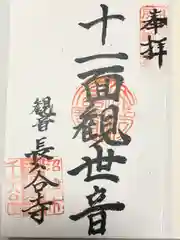 奉拝
十一面観世音
観音
長谷寺